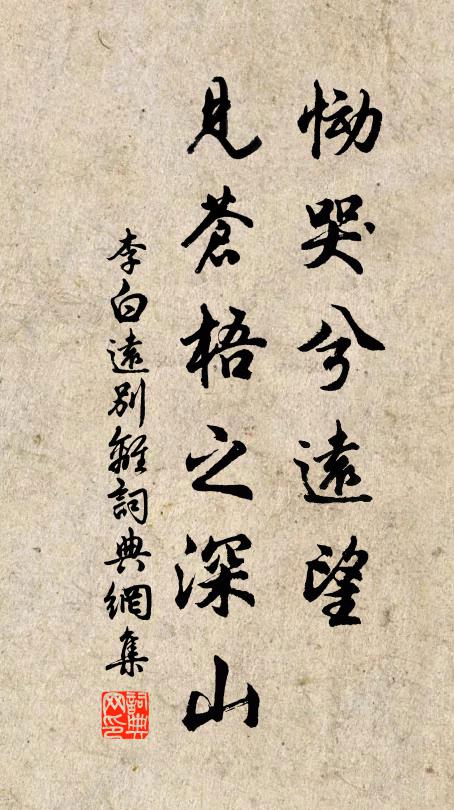 慟哭兮遠望
見蒼梧之深山
李白遠別離詞典網集
詞典網印